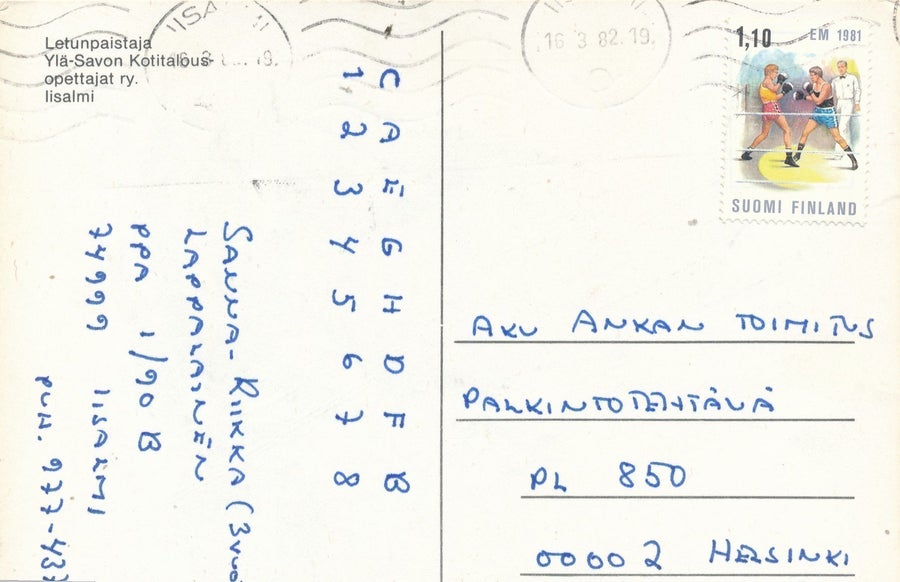 Letunpaistaja
Ylä-Savon Kotitalous-
opettajat ry.
Iisalmi
IISA
16 3 82.19.
1,10 EM 1981
SUOMI FINLAND
C A E G H D F B
1 2 3 4 5 6 7 8
SANNA-RIIKKA (3vuo
LAPPALAINEN
PPA 1/90 B
74999 IISALMI
PUH. 977-437
AKU ANKAN TOIMITUS
PALKINTOTEHTÄVÄ
PL 850
00002 HELSINKI